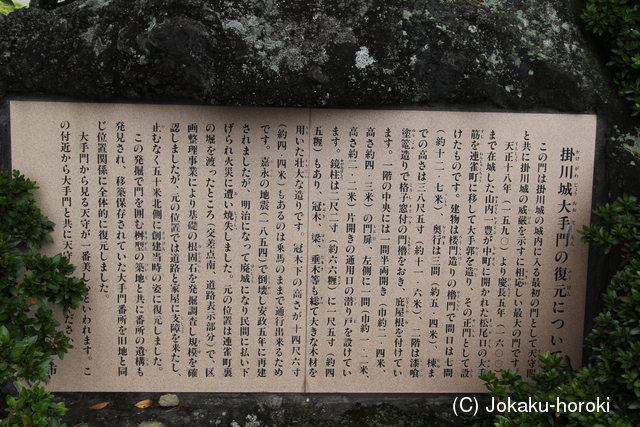 掛川城大手門の復元につい
この門は掛川城の城内に入る最初の門として天守閣
と共に掛川城の威厳を示すに相応しい最大の門です
天正十八年(一五九〇)より慶長五年(一六〇〇
まで在城した山内一豊が中町に開かれた松尾口の大手
筋を連雀町に移して大手郭を造り、その正門として設
けたものです。建物は楼門造りの櫓門で間口は七間
(約十二・七米)、奥行は三間(約五・四米)、棟ま
での高さは三八尺五寸(約十一・六米)、一階は漆喰
塗籠造りで格子窓付の門櫓をおき、庇屋根を付けてい
ます。一階の中央には一間半両開き(巾約二・四米、
高さ約四・三米)の門扉、左側に一間(巾約一・二米、
高さ約二・二米)片開きの通用口の潜り戸を設けてい
ます。鏡柱は二尺二寸(約六六糎)に一尺五寸(約四
五糎)もあり、冠木・梁・垂木等も総て大きな木材を
用いた壮大な造りです。冠木下の高さが十四尺六寸
(約四・四米)もあるのは乗馬のままで通行出来るため
です。嘉永の地震(一八五四)で倒壊し安政五年に再建
されましたが、明治になって廃城になり民間に払い下
げられ火災に遭い焼失しました。元の位置は連雀町裏
の堀を渡ったところ(交差点南、道路表示部分)で、区
画整理事業により基礎の根固石を発掘調査し規模を確
認しましたが、元の位置では道路と家屋に支障を来たし、
止むなく五十米北側に創建当時の姿に復元しました。
この発掘で門を囲む桝型の築地と共に番所の遺構も
発見され、移築保存されていた大手門番所を旧地と同
じ位置関係に全体的に復元しました。
大手門から見る天守が一番美し といわれます。こ
の付近から大手門と共に天守 ださい
市
(C) Jokaku-horoki